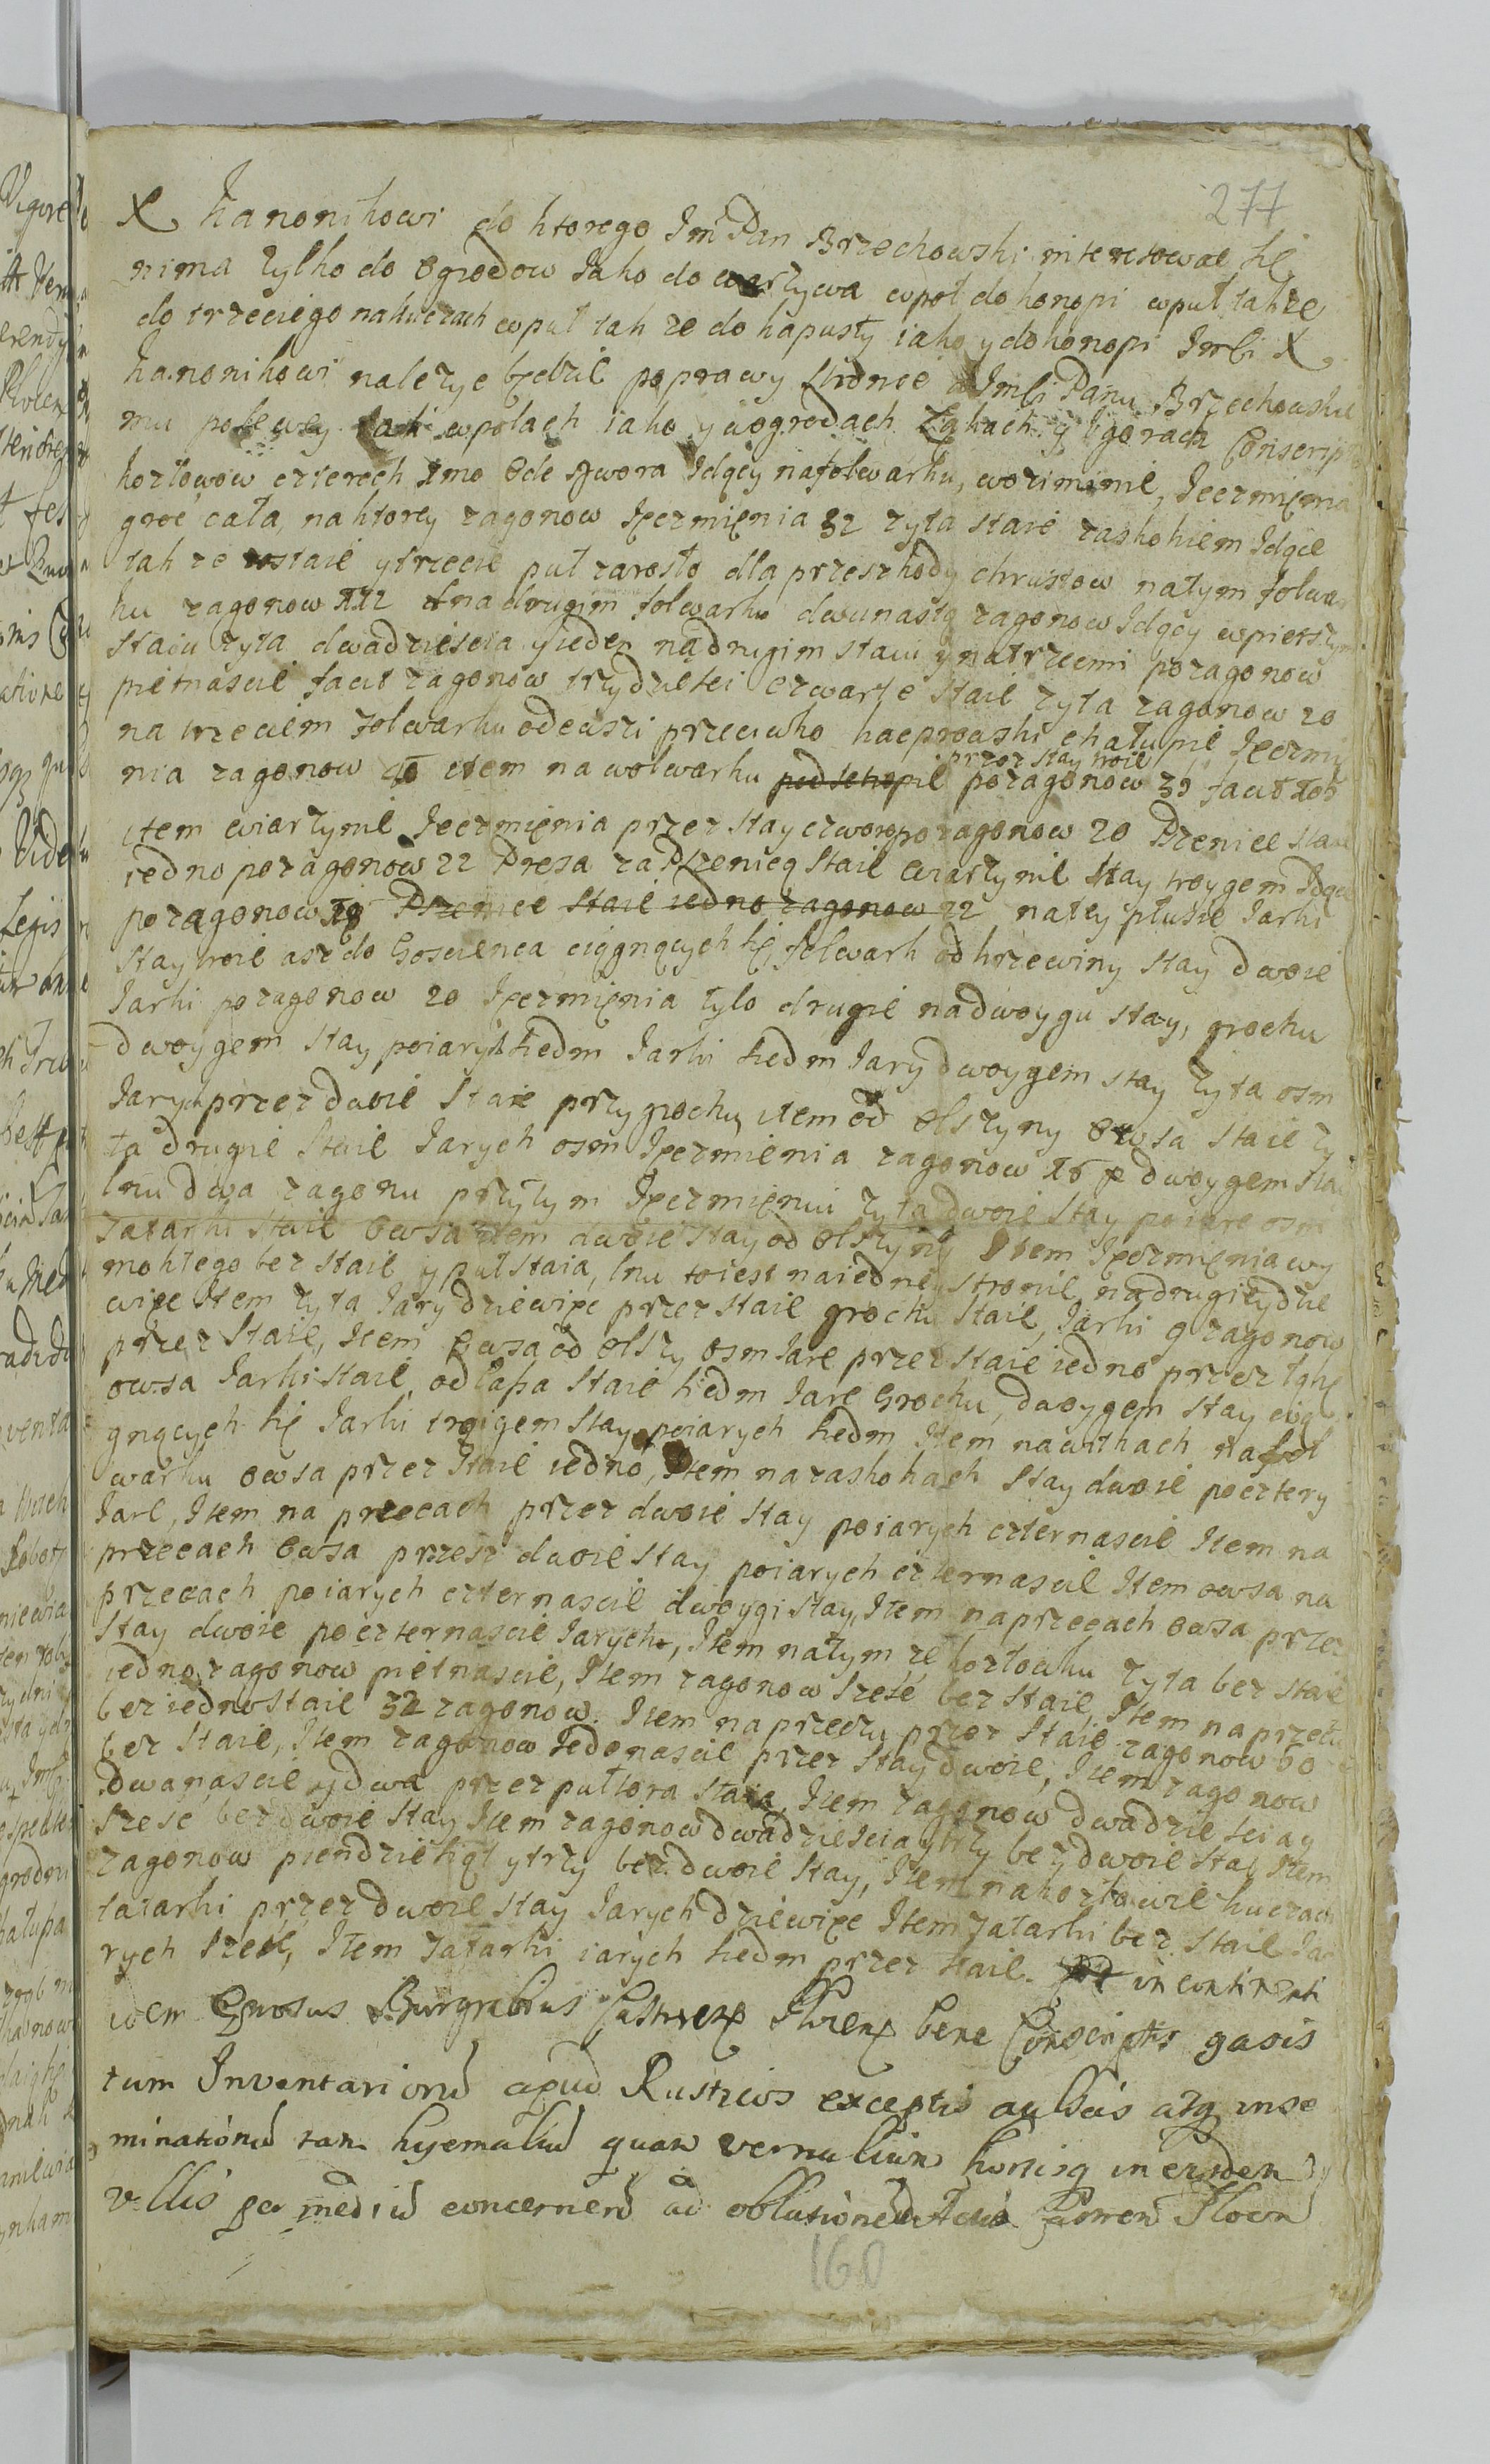 277
X Kanonikowi do ktorego Jm Pan Brzechowski interesował się
nima tylko do ogrodow Jako do warzywa wpoł do konopi wpuł takze
do trzeciego nakuczach wpuł tak ze do kapusty iako y do konopi Jmści X
Kanonikowi nalezyc będzie poprawy stronie Jmści Panu Brzechowsku
mu polewey tak wpolach iako y wogrodach Łąkach y
kozłowow czterech 1mo Ode Dwora Jdący nafolwarku, wozimimie, Jęczmięnia
groc cała, naktorey zagonow Jęczmięnia 32 zyta staie zaskokiem Jdące
tak ze staie ytrzecie puł zarosło dla przeszkody chrustow natym folwar
ku zagonow 112 Anadrugim folwarku dwunasto zagonow Jdący wpierszym
staiu zyta dwadziescia yieden nadrugim staiu ynatrzecmi pozagonow
pietnascie facit zagonow trzydziesci czwarte staie zyta zagonow 20
na trzeciem folwarku odewsi przeciwko chałupie Jęczmię
przez stay troie
nia zagonow item nawolwarku pozagonow 39 facit 105
item cwiartynie Jęczmięnia przez stay czworo pozagonow 20 Pzenice staie
iedno pozagonow 22 Presa zaPszenicą staie cwiartynie stay troygem Jdące
pozagonow 18 Pszenice staie iedno zagonow 22 natey płusie Jarki
stay troie asz do Goscienca ciągnących się, folwark od krzewiny stay dwoie
Jarki pozagonow 20 Jęczmięnia tylo drugie nadwoygu stay, grochu
dwoygem stay poiarych siedm Jarki siedm Jary dwoygem stay zyta osm
Jarych przez dwoie staie przy grochu, item od olszyny owsa staie zy
ta drugie staie Jarych osm Jęczmienia zagonow 16 dwoygem stai
lnu dwa zagonu przytym Jęczmięniu zyta dwoie stay poiare osm
Tatarki staie Owsa item dwoie stay od olszyny Item Jęczmięnia wy
mokłego bez staie y puł staia, lnu toiest naiedney stronie nadrugieydzie
więc Item zyta Jary dziewięc przez staie grochu staie, Jarki 9 zagonow
przez staie, Item owsa od olszy osm Jare przez staie iedno przez łąkę
owsa Jarki staie od łapa staie siedm Jare Grochu, dwoygem stay cią
gnących się Jarki troigem stay poiarych siedm Item nawilkach nafol
warku owsa przez staie iedno, Item nazaskokach stay dwoie poczterÿ
Jare, Item na przecach przez dwoie stay poiarych czternascie Item na
przecach owsa przesz dwoie stay poiarych czternascie Item owsa na
przecach poiarych czternascie dwoygi stay, Item naprzecach owsa przez
stay dwoie poczternascie Jarych, Item natym ze kozłowku zyta bez staie
iedno zagonow pietnascie, Item zagonow szesć bez staie, Item naprzeciu
beziedno staie 32 zagonow. Item naprzeczu przez staie zagonow 60
bez staie, Item zagonow Jedenascie przez stay dwoie, Item zagonow
dwanascie ydwa przez pułtora staia, Item zagonow dwadziesciay
szesc, bez dwoie stay Item zagonow dwadziescia ytrzy bez dwoie stai Item
zagonow piendziesiąt ytrzy bez dwoie stay, Item nakozłowie kuczach
tatarki przez dwoie stay Jarych dziewięc Item Tatarki bez staie Ja
rych szesc, Item Tatarki iarych siedm przez staie. in continenti
idem Burgrabius bene
tum Inventariorum apud Rusticos exceptis atq inse
minationum tam hyemalium quam vernalium
villis per medium concernen ad oblationem
160